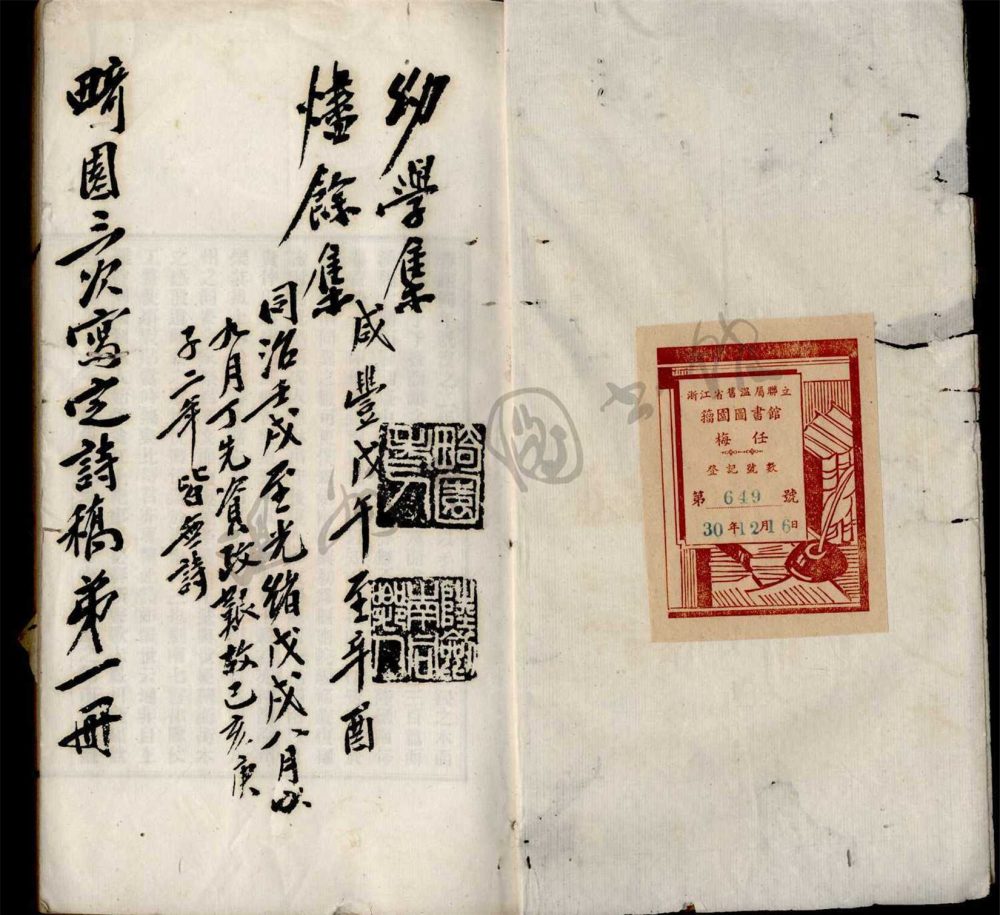 浙江省舊溫屬聯立
籀園圖書館
梅任
登記號數
第 649 號
30年12月16日
幼學集
咸豐戊午至辛酉
燼餘集
同治壬戌至光緒戊戌八月
九月丁先資政艱故己亥庚
子二年皆無詩
畸園三次寫定詩稿弟一冊
畸園老人